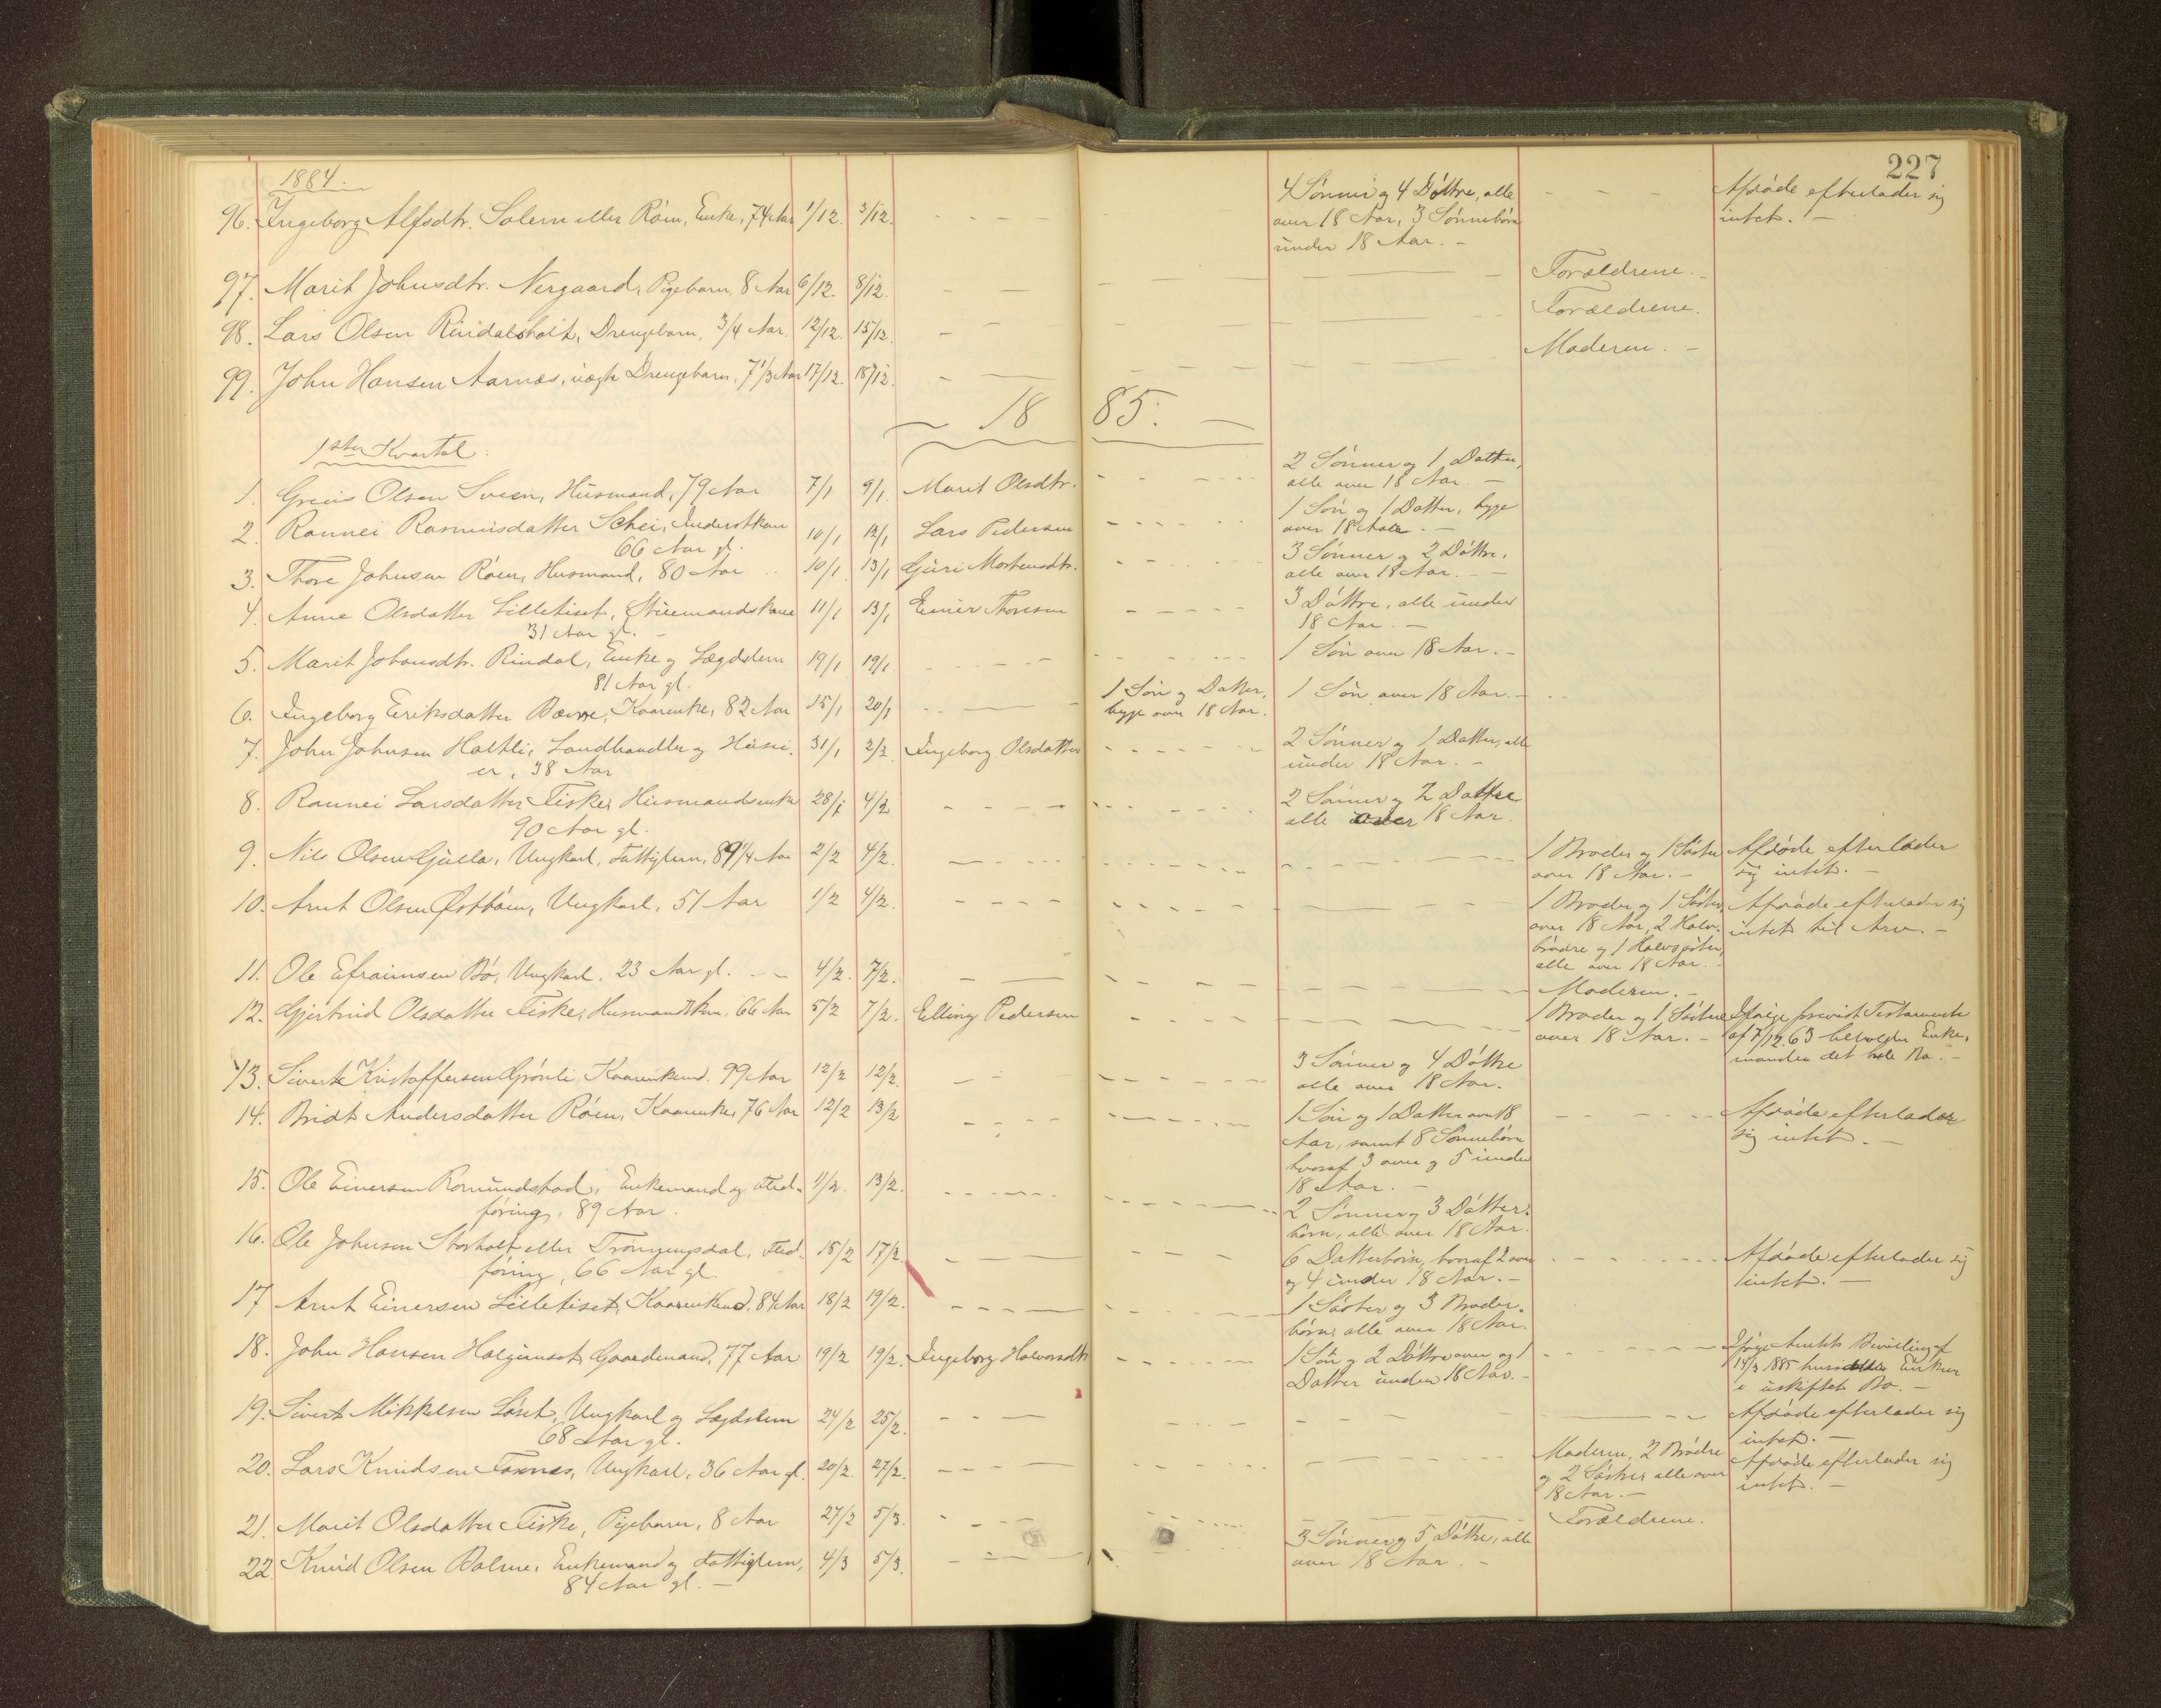 227
1884.
96. Ingeborg Alfsdtr. Solem eller Röen, Enke, 74 Aar 1/12. 3/12. 4 Sönner og 4 Döttre, alle
over 18 Aar, 3 Sönnebörn
under 18 Aar. -
Afdöde efterlader sig
intet. -
97. Marit Johnsdtr. Nergaard, Pigebarn, 8 Aar 6/12. 8/12. Forældrene. -
98. Lars Olsen Rindalsholt, Drengebarn, 3/4 Aar. 12/12. 15/12. Forældrene.
99. John Hansen Aarnæs, uægte Drengebarn, 7 1/3 Aar 17/12. 18/12. Moderen. -
1885.
1ster Kvartal:
1. Olsen Sveen, Husmand, 79 Aar 7/1 9/1. Marit Olsdtr. 2 Sönner og 1 Datter,
alle over 18 Aar. -
2. Rannei Rasmusdatter Schei, Inderstkone 10/1 12/1 Lars Pedersen 1 Sön og 1 Datter, begge
66 Aar gl. over 18 Aar. -
3. Thore Johnsen Röen, Husmand, 80 Aar 10/1 13/1 Guri Mortensdtr. 3 Sönner og 2 Döttre,
alle over 18 Aar. -
4. Anne Olsdatter Lilletiset, 11/1 13/1 Einer Thoresen 3 Döttre, alle under
31 Aar gl. - 18 Aar. -
5. Marit Johansdtr. Rindal, Enke og Lægdslem 19/1 19/1 1 Sön over 18 Aar. -
81 Aar gl.
6. Ingeborg Eriksdatter Bævre, Kaarenke, 82 Aar 15/1 20/1 1 Sön og Datter, 1 Sön over 18 Aar. -
begge over 18 Aar.
7. John Johnsen Holtli, Landhandler og Husei- 31/1 2/2 Ingeborg Olsdatter 2 Sönner og 1 Datter, alle
er, 38 Aar under 18 Aar. -
8. Rannei Larsdatter Fiske, Husmandsenke 28/1 4/2 2 Sönner og 2 Döttre
90 Aar gl. alle over 18 Aar.
9. Nils Olsen Gulla, Ungkarl, Fattiglem, 89 1/4 Aar 2/2 4/2. 1 Broder og 1 Söster Afdöde efterlader
over 18 Aar. - sig intet. -
10. Arnt Olsen Østböen, Ungkarl, 51 Aar 1/2 4/2. 1 Broder og 1 Söster, Afdöde efterlader sig
over 18 Aar, 2 Halv- intet til Arv. -
brödre og 1 Halvsöster,
alle over 18 Aar. -
11. Ole Efraimsen Bö, Ungkarl, 23 Aar gl. 4/2. 7/2. Moderen. -
12. Gjertrud Olsdatter Fiske, Husmandskone, 66 Aar 5/2 7/2. Elling Pedersen 1 Broder og 1 Söster Ifölge Testamente
over 18 Aar. - af 7/12.63 beholder Enke-
manden det hele Bo. -
13. Sivert Kristoffersen Grönli, Kaarenkemd. 99 Aar 12/2 12/2. 3 Sönner og 4 Döttre
alle over 18 Aar.
14. Bridt Andersdatter Röen, Kaarenke, 76 Aar 12/2 13/2 1 Sön og 1 Datter over 18 Afdöde efterlader
Aar, samt 8 Sönnebörn sig intet. -
hvoraf 3 over og 5 under
18 Aar. -
15. Ole Einersen Romundstad, Enkemand og Flad- 11/2. 13/2. 2 Sönner og 3 Datter-
föring, 89 Aar. börn, alle over 18 Aar.
16. Ole Johnsen Storholt eller Trönningsdal, Flad- 15/2 17/2. 6 Datterbörn, hvoraf 2 over Afdöde efterlader sig
föring, 66 Aar gl. og 4 under 18 Aar. - intet. -
17 Arnt Einersen Lilletiset, Kaarenkemd. 84 Aar 18/2 19/2. 1 Söster og 3 Broder-
börn, alle over 18 Aar.
18. John Hansen Halgunset, Gaardmand, 77 Aar 19/2 19/2. Ingeborg Halvorsdtr 1 Sön og 2 Döttre over og 1 Ifölge Amtets Bevilling af
Datter under 18 Aar. - 14/3 1885 Enken
i uskiftet Bo. -
19. Sivert Mikkelsen Löset, Ungkarl og Lægdslem 24/2 25/2. Afdöde efterlader sig
68 Aar gl. intet. -
20. Lars Knudsen Foxnes, Ungkarl, 36 Aar gl. 20/2. 27/2. Moderen, 2 Brödre Afdöde efterlader sig
og 2 Söstre, alle over intet. -
18 Aar. -
21. Marit Olsdatter Fiske, Pigebarn, 8 Aar 27/2 5/3. Forældrene.
22. Knud Olsen Bolme, Enkemand og Fattiglem, 4/3 5/3. 3 Sönner og 5 Döttre, alle
84 Aar gl. - over 18 Aar. -